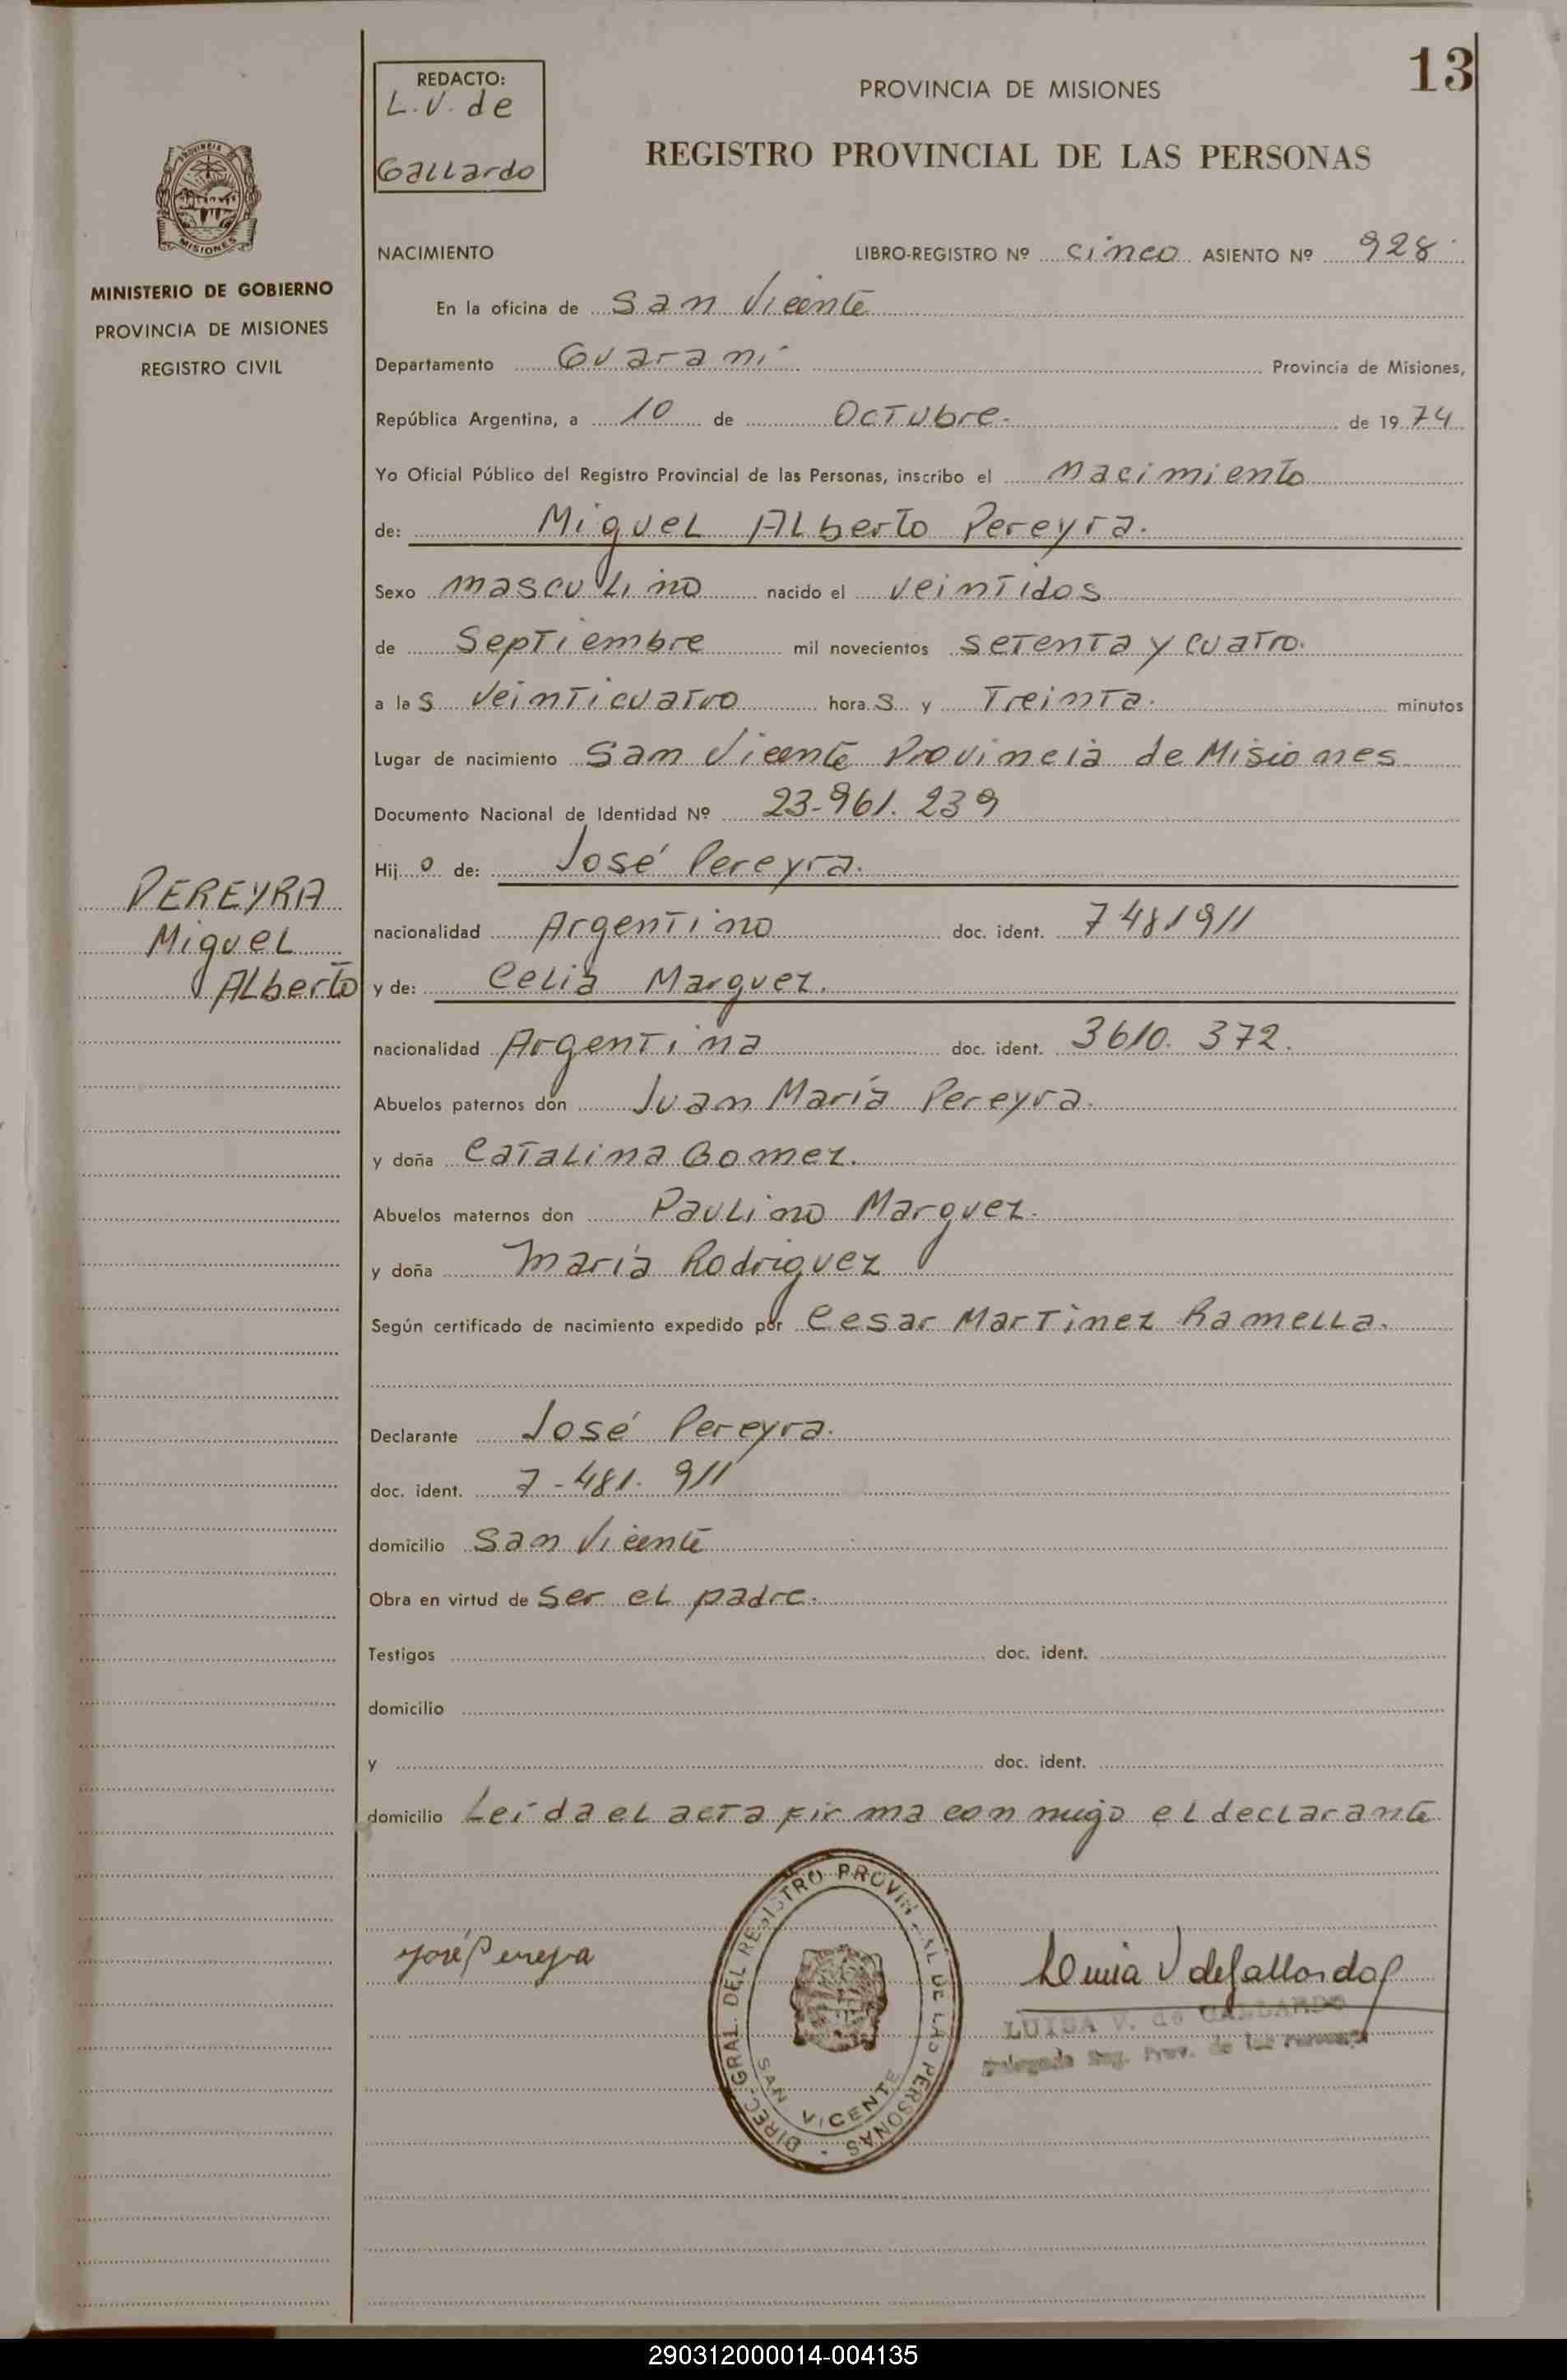 13
REDACTO:
L.V. de
Gallardo
PROVINCIA DE MISIONES
REGISTRO PROVINCIAL DE LAS PERSONAS
PROVINCIA DE
MISIONES
MINISTERIO DE GOBIERNO
PROVINCIA DE MISIONES
REGISTRO CIVIL
NACIMIENTO LIBRO-REGISTRO Nº cinco ASIENTO Nº 928
En la oficina de San Vicente
Departamento Guaraní Provincia de Misiones,
República Argentina, a 10 de Octubre. de 1974
Yo Oficial Público del Registro Provincial de las Personas, inscribo el nacimiento
de: Miguel Alberto Pereyra.
Sexo masculino nacido el veintidos
de Septiembre mil novecientos setenta y cuatro.
a las veinticuatro horas y Treinta. minutos
Lugar de nacimiento San Vicente Provincia de Misiones
Documento Nacional de Identidad Nº 23-961.239
Hijo de: José Pereyra.
PEREYRA
Miguel
Alberto
nacionalidad Argentino doc. ident. 7481911
y de: Celia Marquez.
nacionalidad Argentina doc. ident. 3610.372.
Abuelos paternos don Juan María Pereyra.
y doña Catalina Gomez.
Abuelos maternos don Paulino Marquez.
y doña María Rodriguez
Según certificado de nacimiento expedido por Cesar Martinez Ramella.
Declarante José Pereyra.
doc. ident. 7-481.911
domicilio San Vicente
Obra en virtud de ser el padre.
Testigos doc. ident.
domicilio
y doc. ident.
domicilio Leída el acta firma conmigo el declarante
José Pereyra
DIREC. GRAL. DEL REGISTRO PROVINCIAL DE LAS PERSONAS
SAN VICENTE
Luisa V de Gallardo
LUISA V. de GALLARDO
Delegada Reg. Prov. de las Personas
290312000014-004135